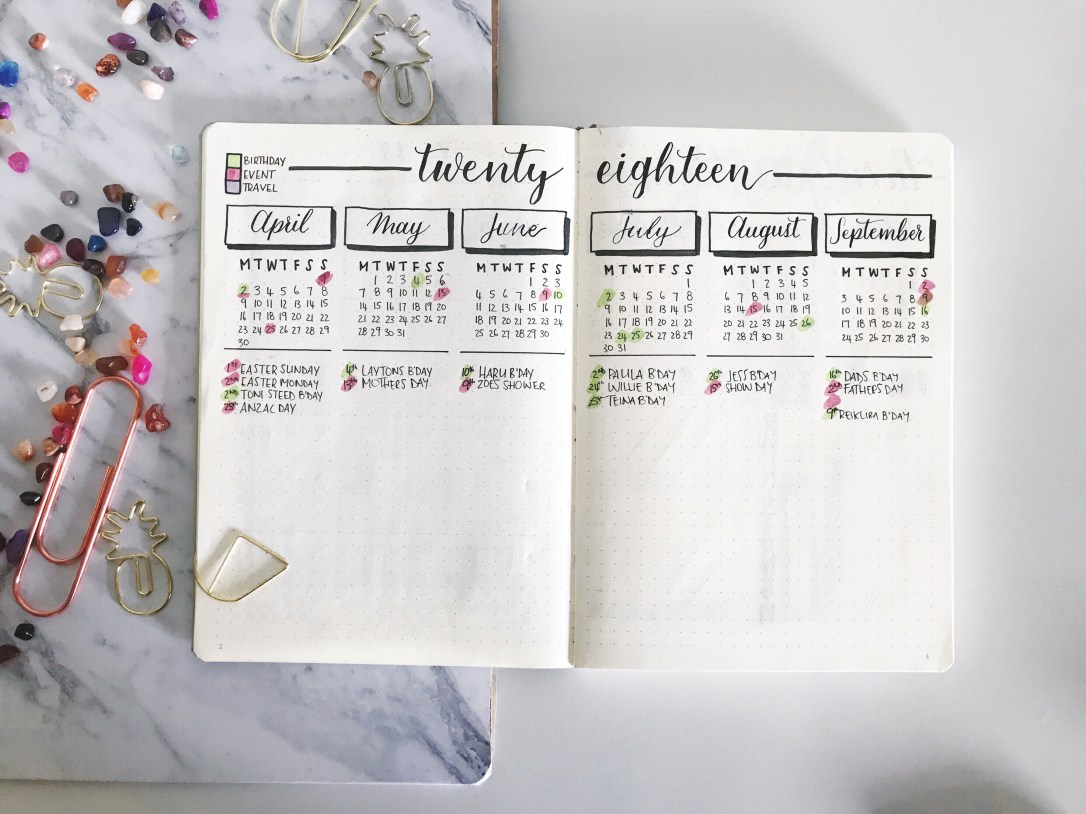 BIRTHDAY
EVENT
TRAVEL
twenty eighteen
April
M T W T F S S
1
2 3 4 5 6 7 8
9 10 11 12 13 14 15
16 17 18 19 20 21 22
23 24 25 26 27 28 29
30
1ST EASTER SUNDAY
2ND EASTER MONDAY
2ND TONI STEED B'DAY
25th ANZAC DAY
May
M T W T F S S
1 2 3 4 5 6
7 8 9 10 11 12 13
14 15 16 17 18 19 20
21 22 23 24 25 26 27
28 29 30 31
4th LAYTONS B'DAY
13th MOTHERS DAY
June
M T W T F S S
1 2 3
4 5 6 7 8 9 10
11 12 13 14 15 16 17
18 19 20 21 22 23 24
25 26 27 28 29 30
10th HARU B'DAY
9th ZOES SHOWER
July
M T W T F S S
1
2 3 4 5 6 7 8
9 10 11 12 13 14 15
16 17 18 19 20 21 22
23 24 25 26 27 28 29
30 31
2nd PAULA B'DAY
24th WILLIE B'DAY
25th TEINA B'DAY
August
M T W T F S S
1 2 3 4 5
6 7 8 9 10 11 12
13 14 15 16 17 18 19
20 21 22 23 24 25 26
27 28 29 30 31
26th JESS B'DAY
15th SHOW DAY
September
M T W T F S S
1 2
3 4 5 6 7 8 9
10 11 12 13 14 15 16
17 18 19 20 21 22 23
24 25 26 27 28 29 30
16th DADS B'DAY
2nd FATHERS DAY
9th B'DAY
2